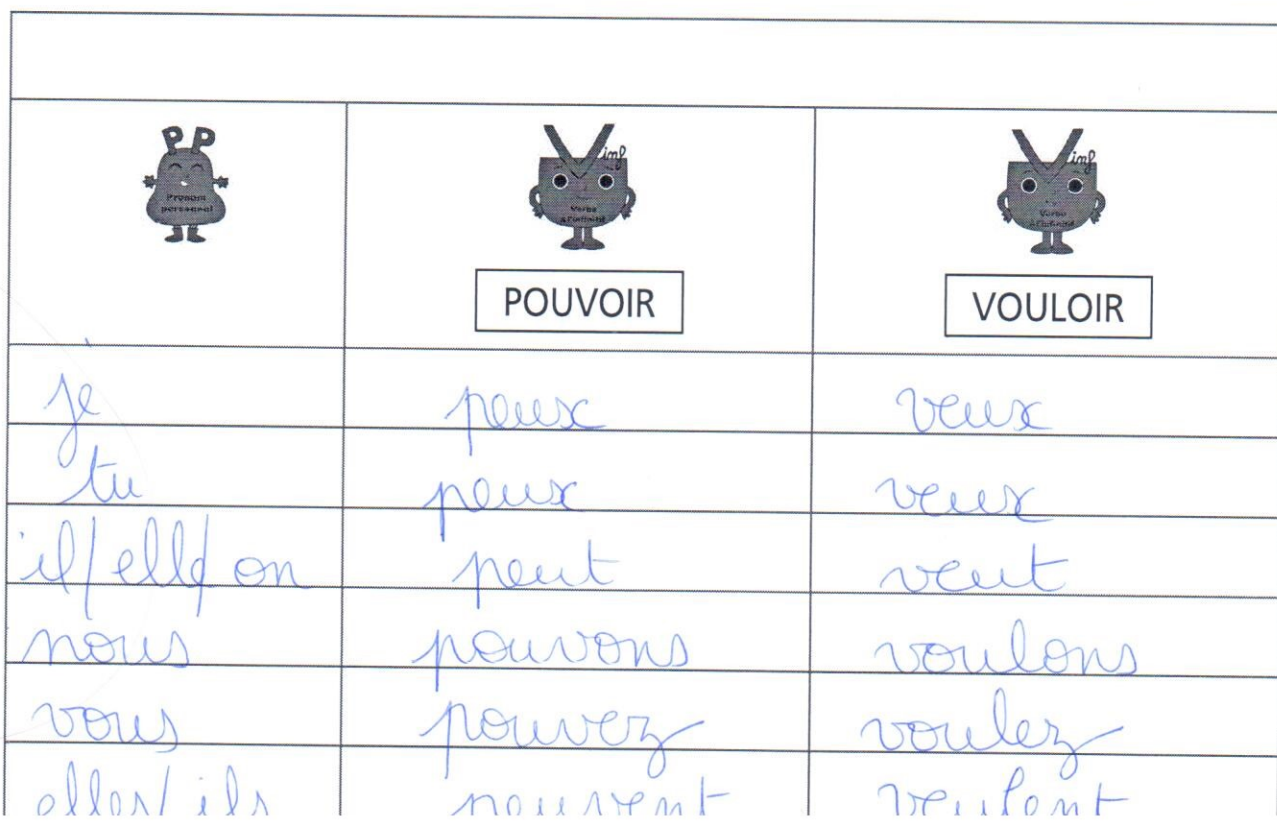 PP
Pronom personnel
V inf
Verbe à l'infinitif
V inf
Verbe à l'infinitif
POUVOIR VOULOIR
je peux veux
tu peux veux
il/elle/on peut veut
nous pouvons voulons
vous pouvez voulez
elles/ils peuvent veulent